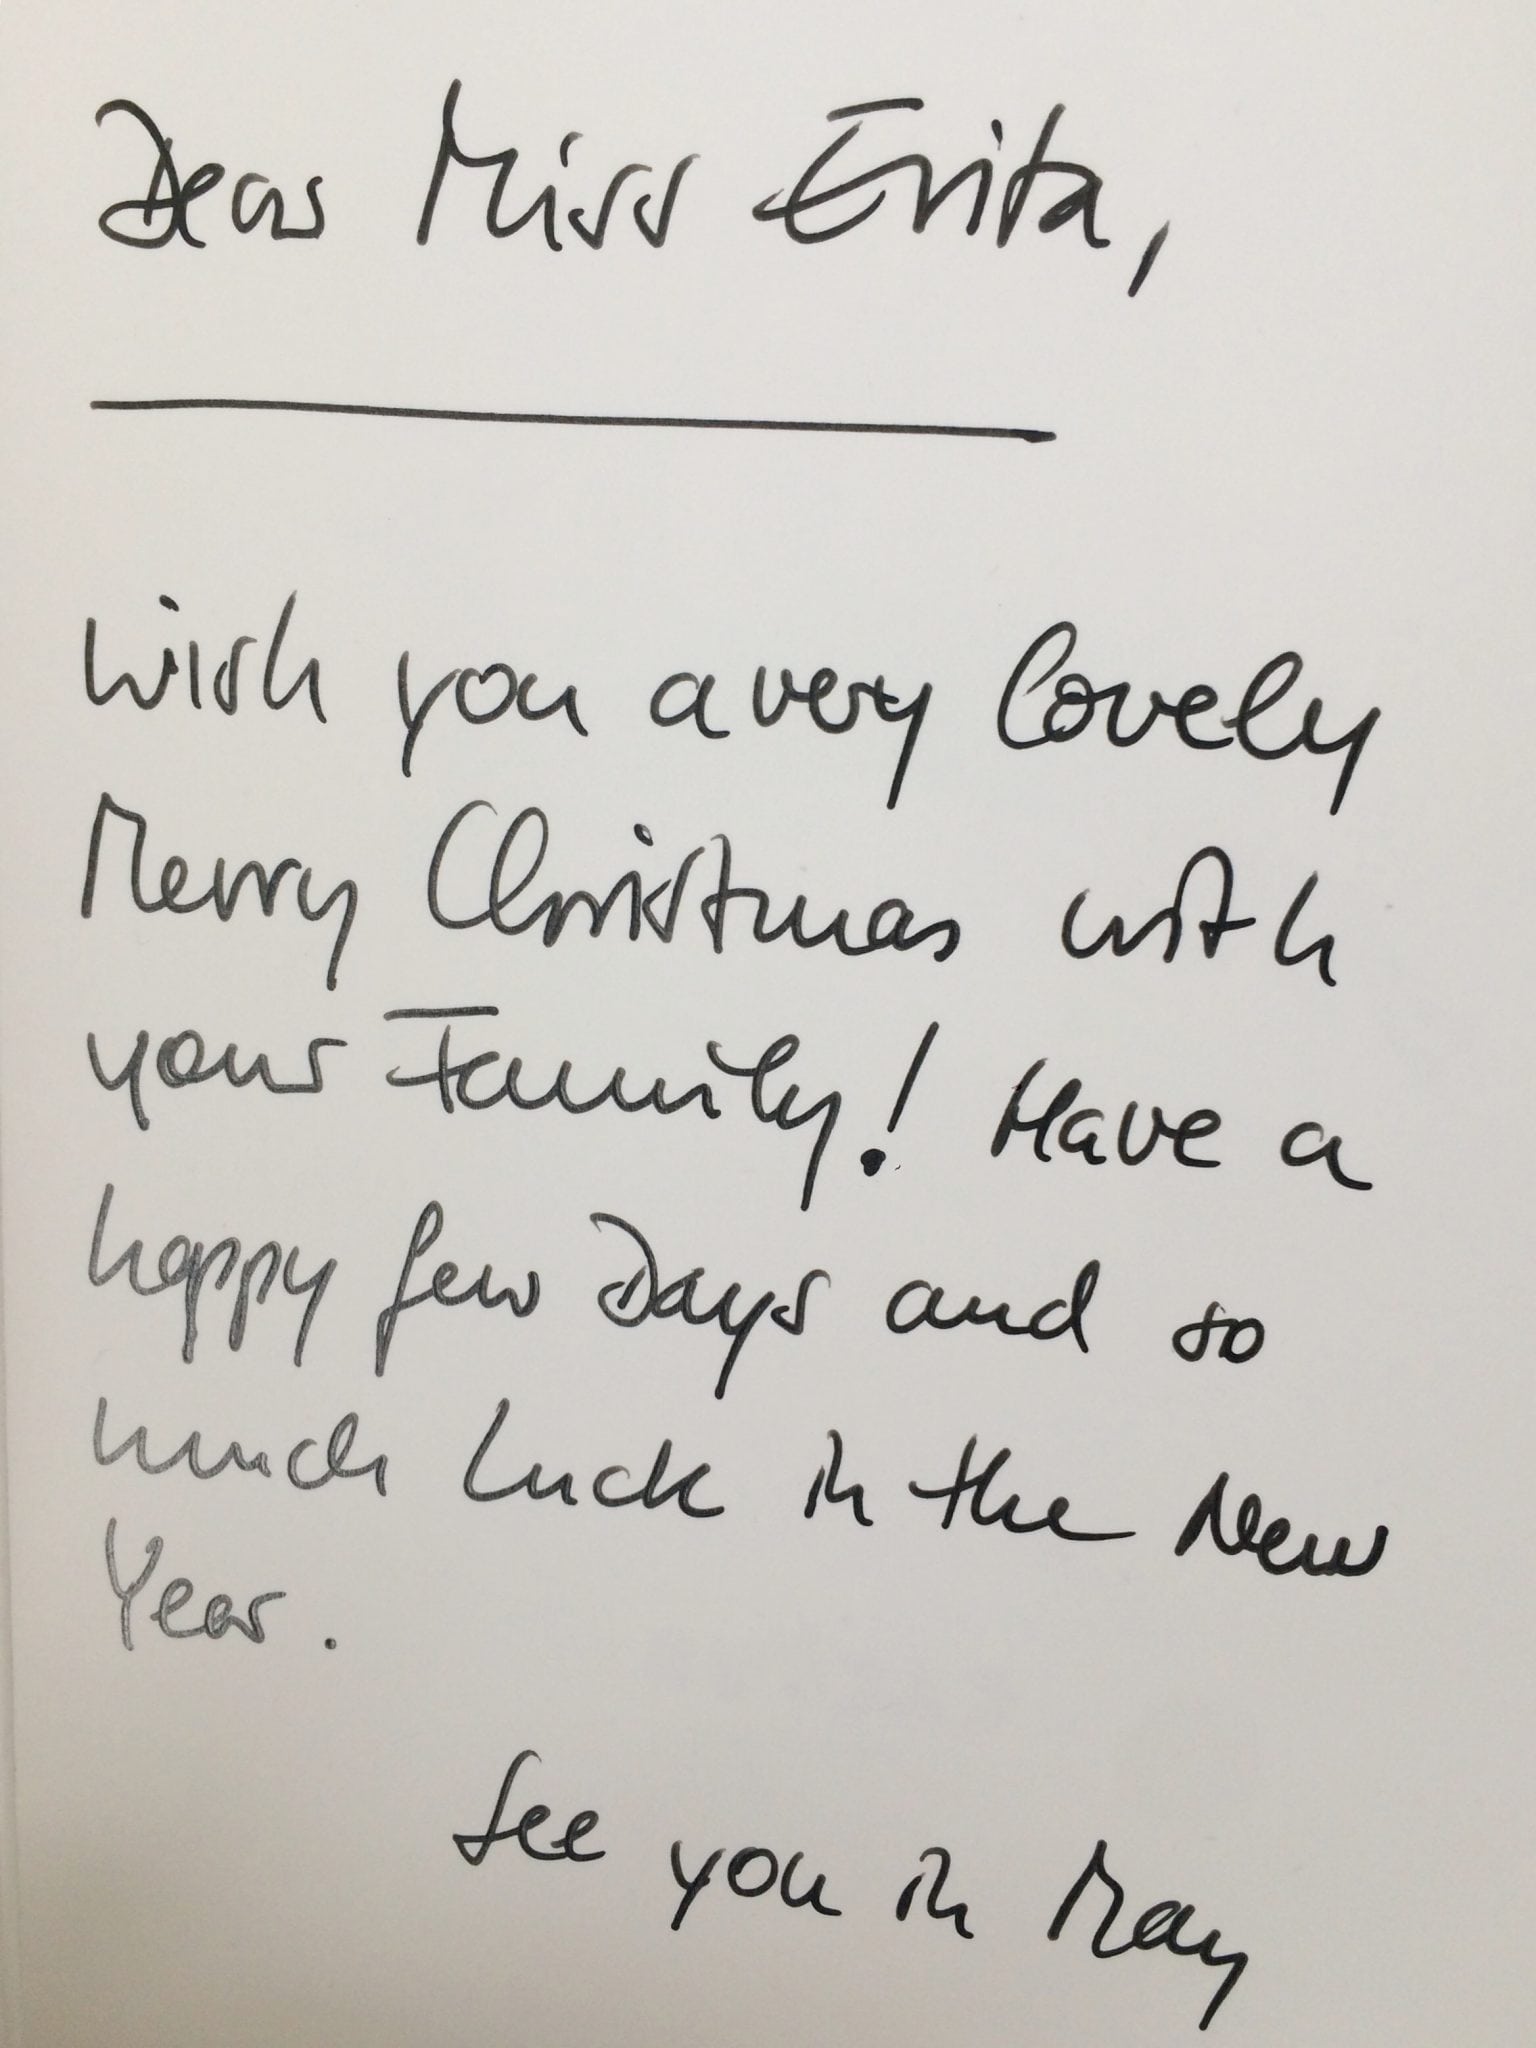 Dear Miss Erita,
wish you a very lovely
Merry Christmas with
your Family! Have a
happy few Days and so
much luck in the New
Year.
See you in May